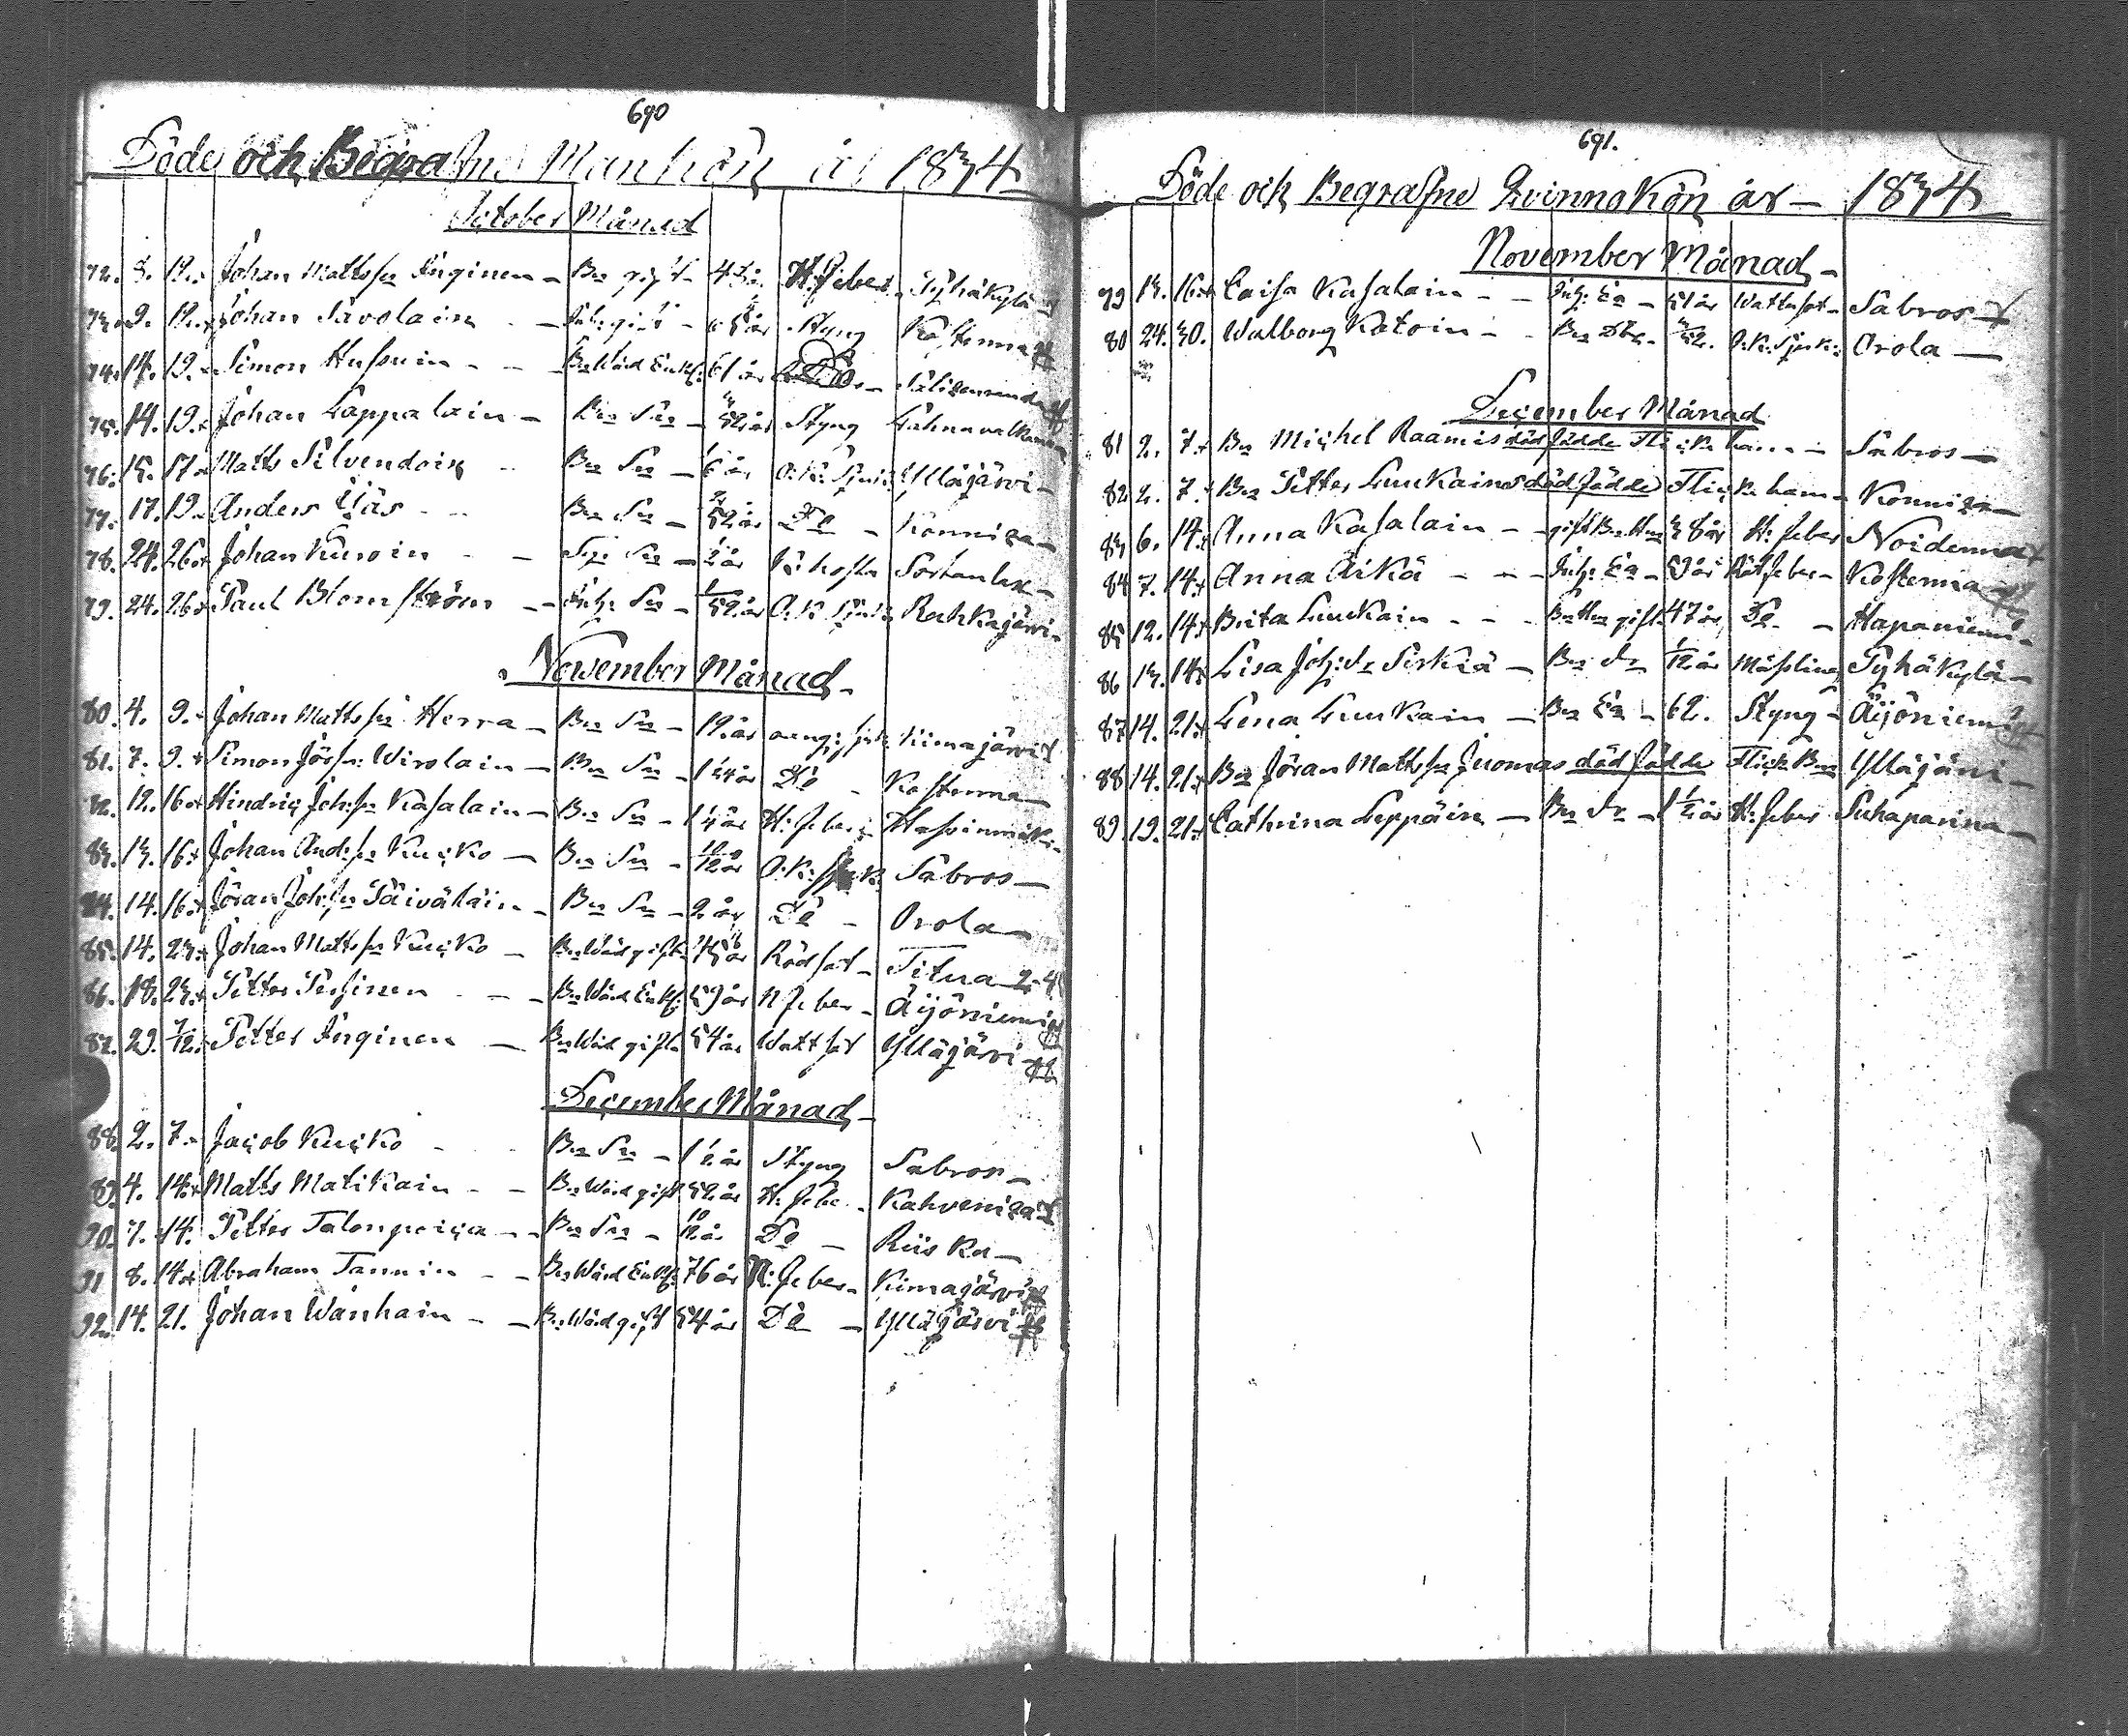 690
Döde och Begrafne Mankön år 1834
October Månad
72. 3. 19. Johan Mattss: Inginen - Bn gift - 43 år H: feber Pyhäkylä
73. 9. 19. Johan Savolain - Inh: gift - Styng Kosterma
74. 14. 19. Simon Hussuin - Bn Wärd Enkl: 61 år
75. 14. 19. Johan Lappalain - Bn Sn - 3/52 år Styng
76. 15. 17 Matts Silvendoin Bn Sn - 6 år O: K: Sjuk: Ylläjärvi -
77. 17. 19. Anders Äjäs - Bn Sn - 2/52 år Do - Konniza -
78. 24. 26 Johan Kuroin - Sn - 1/2 år Kikhosta Sortanlax -
79. 24. 26 Paul Blomström - Inh: Sn - 1/52 år O. K Sjuk: Rahkajärvi -
November Månad -
80. 4. 9. Johan Mattss: Herra - Bn Sn - 19. år aung: sjuk: Kimajärvi
81. 7. 9. Simon Jörss: Wirolain - Bn Sn - Do - Kosterma -
82. 12. 16 Hindric Johss: Kasalain - Bn Sn - 1 1/4 år H: feber
83. 13. 16 Johan Andss: Kucko - Bn Sn - 10/12 år O: K: Sjuk: Sabros -
84. 14. 16 Jöran Johss: Päiväläin - Bn Sn - 2 år Do - Orola -
85. 14. 23 Johan Mattss: Kucko - Bn Wärd gift Rödsot - Titua
86. 18. 23 Petter Pessinen - Bn Wärd Enkl: 59 år N feber - Äijöniemi
87. 29. 7/12. Petter Inginen - Bn Wärd gift 54 år Wattsot Ylläjärvi
December Månad -
88. 2. 7. Jacob Kucko - Bn Sn - 1 1/2 år Styng Sabros -
89. 4. 14. Matts Matikain - Bn Wärd gift 52 år H: feber - Kahveniza
90. 7. 14. Petter Talonpoica - Bn Sn - 10/12 år Do - Riiska -
91 8. 14. Abraham Tannin - Bn Wärd Enkl: 76 år N: feber - Kimajärvi
92. 14. 21. Johan Wanhain - Bn Wärd gift 54 år Do - Ylläjärvi
691.
Döde och Begrafne Qvinnokön år - 1834
November Månad -
79 13. 16. Caisa Kasalain - Inh: Ea - 51 år Wattusot - Sabros
80 24. 30. Walborg Katoin - Bn Dtr - 3/52. O: K: Sjuk: Orola -
December Månad
81 2. 7. Bn Michel Raamis död födde Flicka barn - Sabros -
82 2. 7. Bn Petter Luukaines död födde Flicka barn - Konniza -
83 6. 14. Anna Kasalain - gift Bn Hu 38 år H: feber Noiderma
84 7. 14. Anna Äikä - Inh: Ea - 59 år Rötfeber - Kosterma
85 12. 14. Brita Luukain - Bn Hu gift 47 år Do - Hapaniemi -
86 13. 14. Lisa Joh: dr Sirkiä - Bn dr 1/12 år Mässling Pyhäkylä -
87 14. 21. Lena Luukain - Bn Ea - 62. Styng - Äijöniemi
88 14. 21. Bn Jöran Mattss: Juomas död födde Flicka Bn Ylläjärvi -
89. 19. 21. Cathrina Leppäin - Bn dr - 1 1/2 år H: feber Suhaparina -